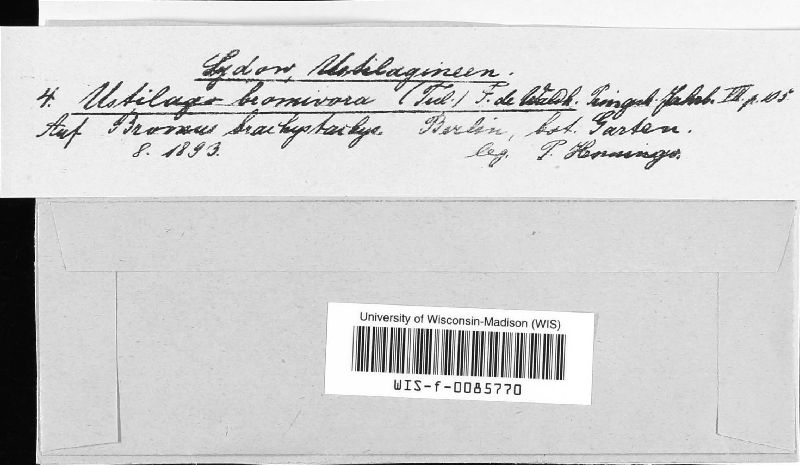 Sydow, Ustilagineen.
4. Ustilago bromivora (Tul.) F. de Waldh. Pringsh. Jahrb. VII p. 105
Auf Bromus brachystachys. Berlin, bot. Garten.
8. 1893. leg. P. Hennings.
University of Wisconsin-Madison (WIS)
WIS-f-0085770